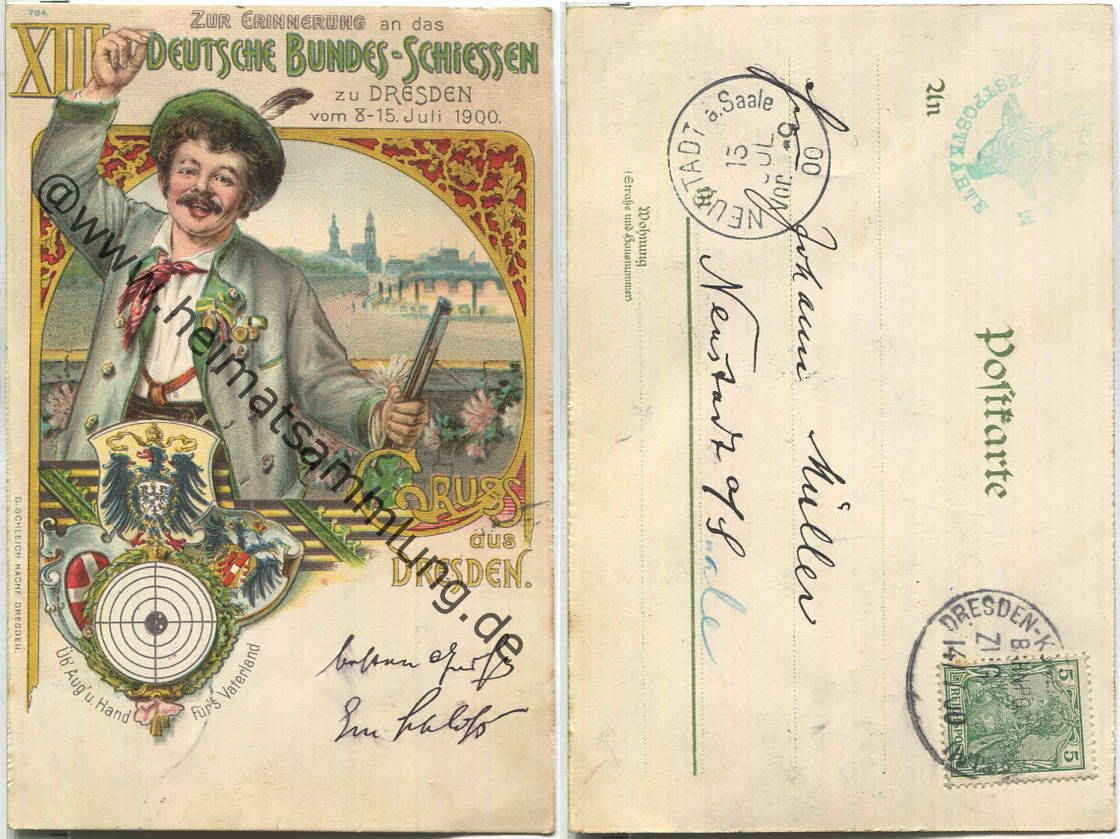 784.
ZUR ERINNERUNG an das
XIII DEUTSCHE BUNDES-SCHIESSEN
zu DRESDEN
vom 8-15. Juli 1900.
@www.heimatsammlung.de
GRUSS
aus
DRESDEN.
G. SCHLEICH NACHF. DRESDEN.
Üb' Aug' u. Hand
Für's Vaterland
An
FESTPOSTKARTE
Postkarte
NEUSTADT a. Saale
15 JUL
00
Johann Müller
Neustadt a/Saale
Wohnung
(Straße und Hausnummer)
DRESDEN
14
00
5
REICHSPOST
5